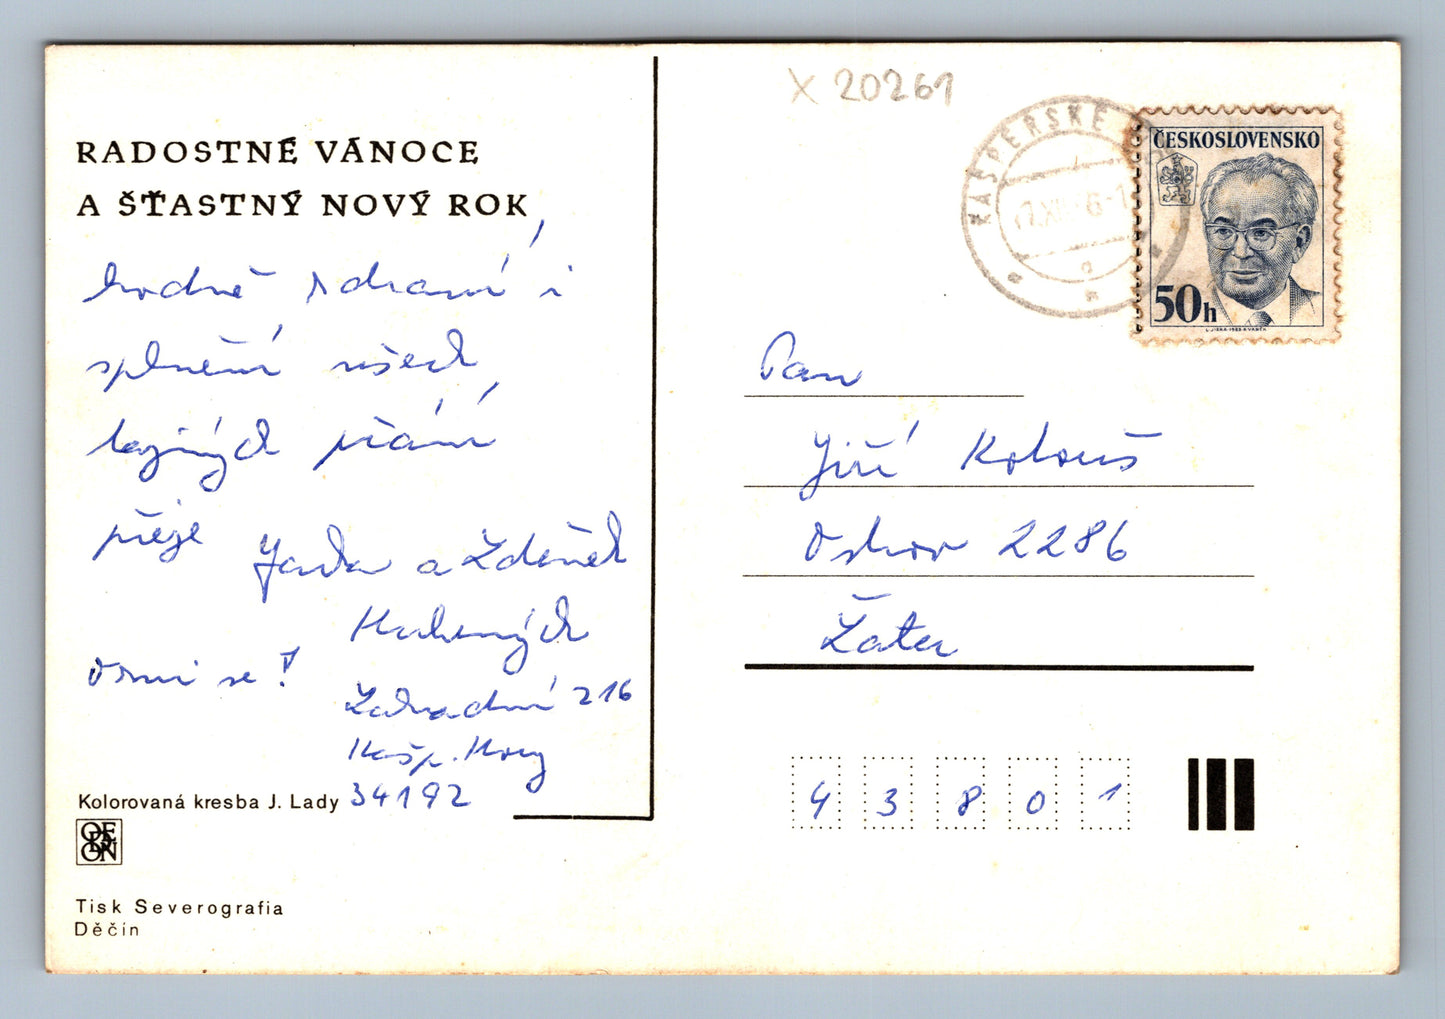 X 20261
RADOSTNÉ VÁNOCE
A ŠŤASTNÝ NOVÝ ROK
hodně zdraví i
splnění všech
tajných přání
přeje
Jarka a Zdeněk
ozvi se!
Zahradní 216
Kašp. Hory
34192
Kolorovaná kresba J. Lady
ODEON
Tisk Severografia
Děčín
KAŠPERSKÉ
ČESKOSLOVENSKO
50h
Pan
Jiří Kolouš
Ostrov 2286
Žatec
43801